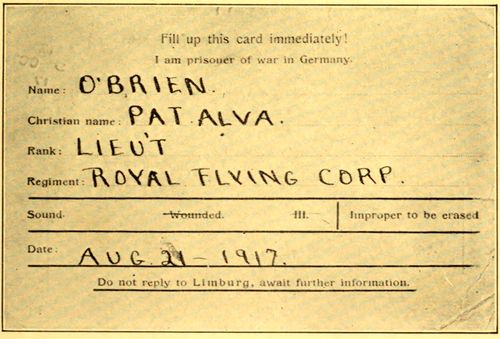 Fill up this card immediately!
I am prisoner of war in Germany.
Name: O'BRIEN.
Christian name: PAT ALVA.
Rank: LIEU'T
Regiment: ROYAL FLYING CORP.
Sound. Wounded. Ill. Improper to be erased
Date: AUG 21 - 1917.
Do not reply to Limburg, await further information.